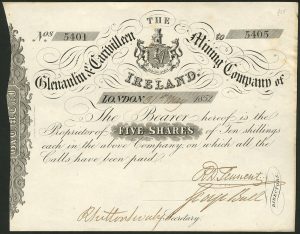 Nos 5401 THE to 5405
Glenaulin & Carivilleen Mining Company of
IRELAND.
LONDON May 185
The Bearer hereof is the
Proprietor of FIVE SHARES of Ten shillings
each in the above Company on which all the
Calls have been paid.
George Bull
DIRECTORS
Secretary.